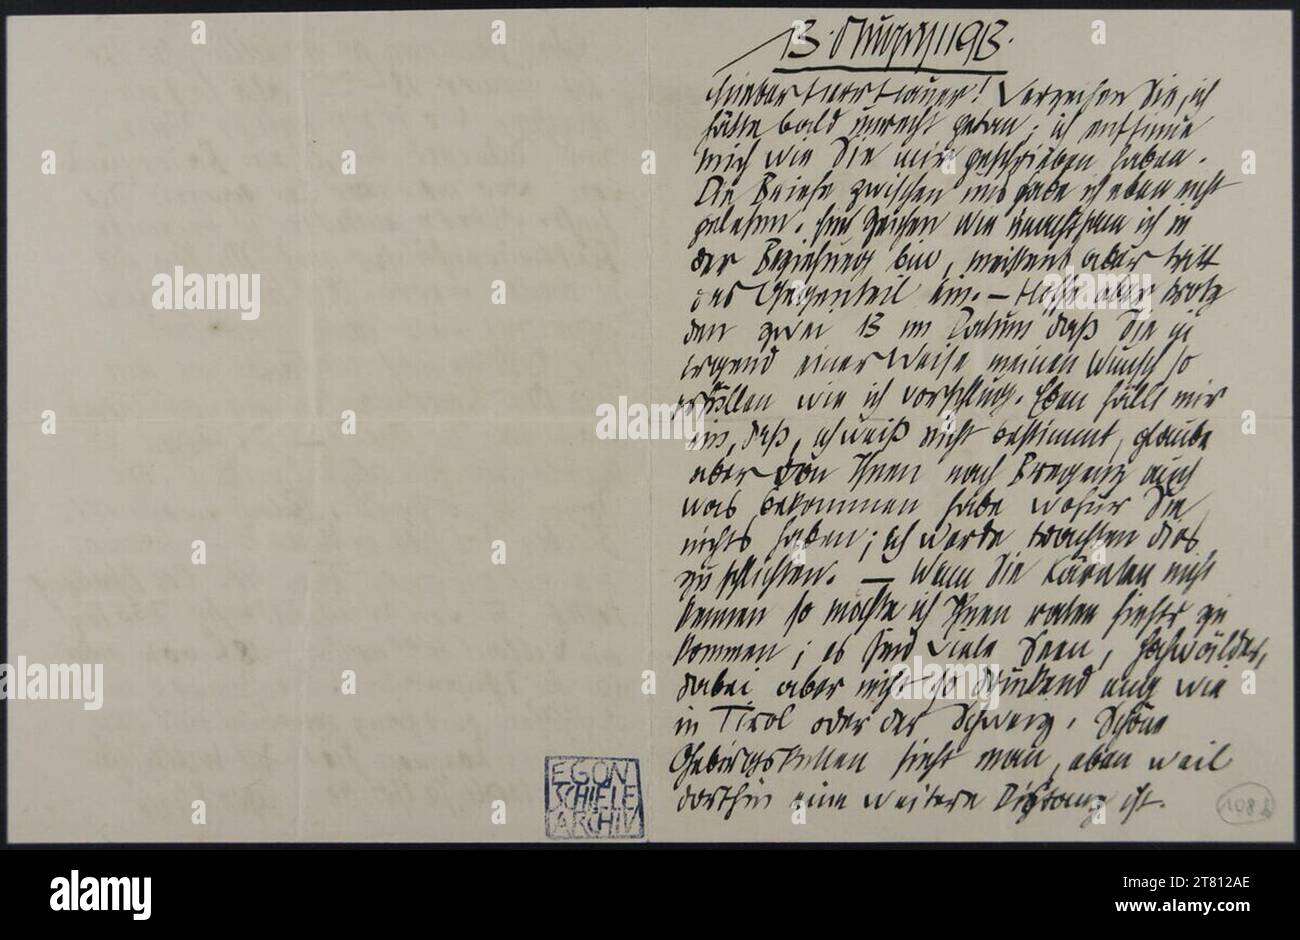 13. August 1913.
Lieber Herr Hauer! Verzeihen Sie, ich
hätte bald unrecht getan; ich entsinne
mich wie Sie mir geschrieben haben.
Die Briefe zwischen uns habe ich eben nicht
gelesen. Ein Zeichen wie ich in
der Beziehung bin, meistens aber tritt
das Gegenteil ein. – Hoffe aber trotz
den zwei 13 im Datum daß Sie in
irgend einer Weise meinen Wunsch so
erfüllen wie ich vorschlug. Eben fällt mir
ein, daß, ich weiß nicht bestimmt, glaube
aber von Ihnen nach Bregenz auch
was bekommen habe wofür Sie
nichts haben; ich werde trachten dies
zu schlichten. – Wenn Sie Kärnten nicht
kennen so möchte ich Ihnen raten hieher zu
kommen; es sind viele Seen, Hochwälder,
dabei aber nicht so drückend eng wie
in Tirol oder der Schweiz. Schöne
Gebirgsketten sieht man, eben weil
dorthin eine weitere Distanz ist.
EGON
SCHIELE
ARCHIV
108
alamy
Image ID: 2T812AE
www.alamy.com